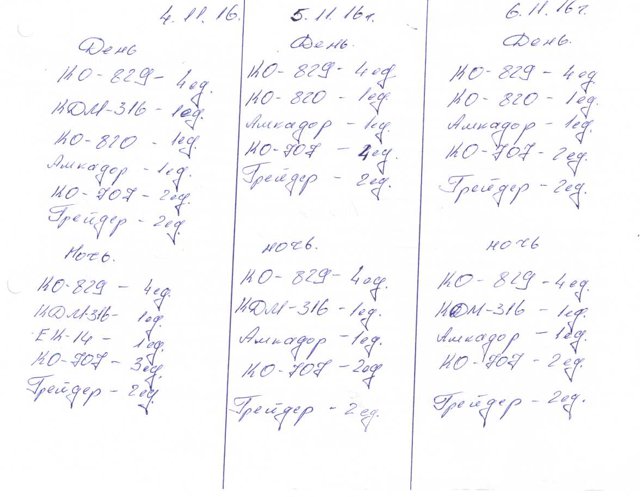 4.11.16.
День
КО-829 - 4ед.
КДМ-316 - 1ед.
КО-820 - 1ед.
Амкадор - 1ед.
КО-707 - 2ед.
Грейдер - 2ед.
Ночь.
КО-829 - 4ед.
КДМ-316 - 1ед.
ЕК-14 - 1ед.
КО-707 - 3ед.
Грейдер - 2ед.
5.11.16г.
День.
КО-829 - 4ед
КО-820 - 1ед.
Амкадор - 1ед.
КО-707 - 4ед.
Грейдер - 2ед.
ночь.
КО-829 - 4ед.
КДМ-316 - 1ед.
Амкадор - 1ед.
КО-707 - 2ед
Грейдер - 2ед.
6.11.16г
День.
КО-829 - 4ед
КО-820 - 1ед.
Амкадор - 1ед.
КО-707 - 2ед.
Грейдер - 2ед.
ночь
КО-829 - 4ед.
КДМ-316 - 1ед.
Амкадор - 1ед.
КО-707 - 2ед.
Грейдер - 2ед.